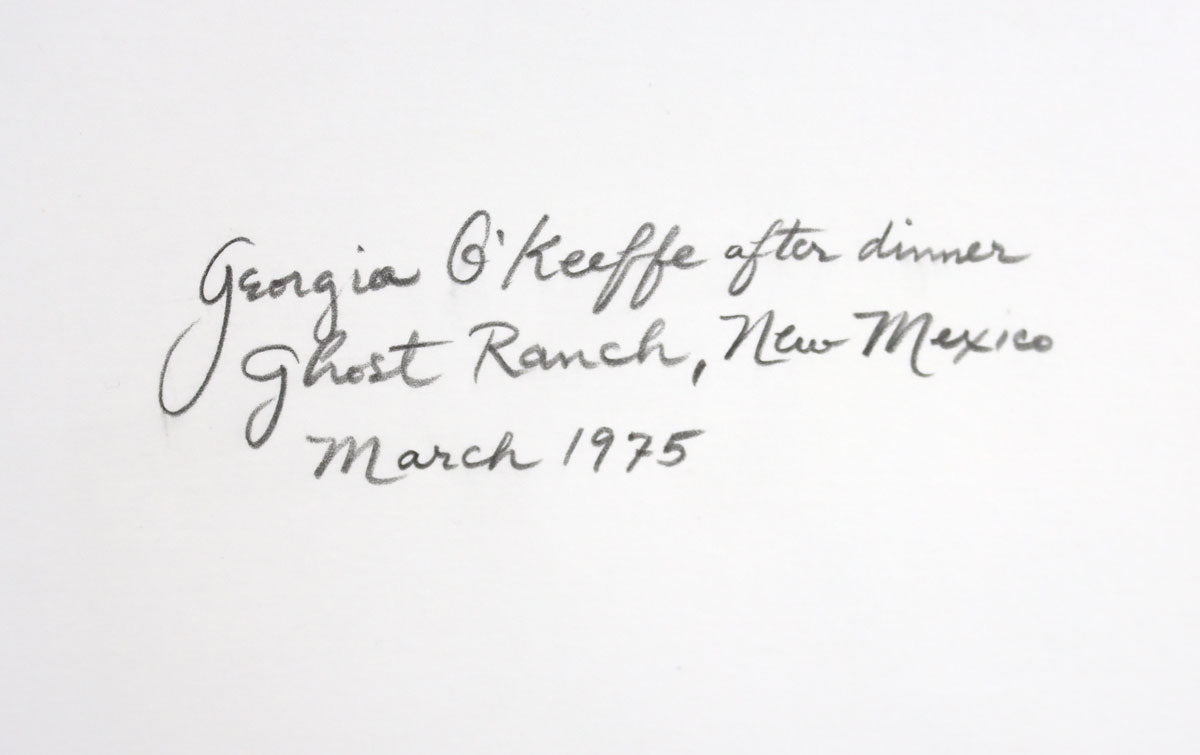 Georgia O'Keeffe after dinner
Ghost Ranch, New Mexico
March 1975